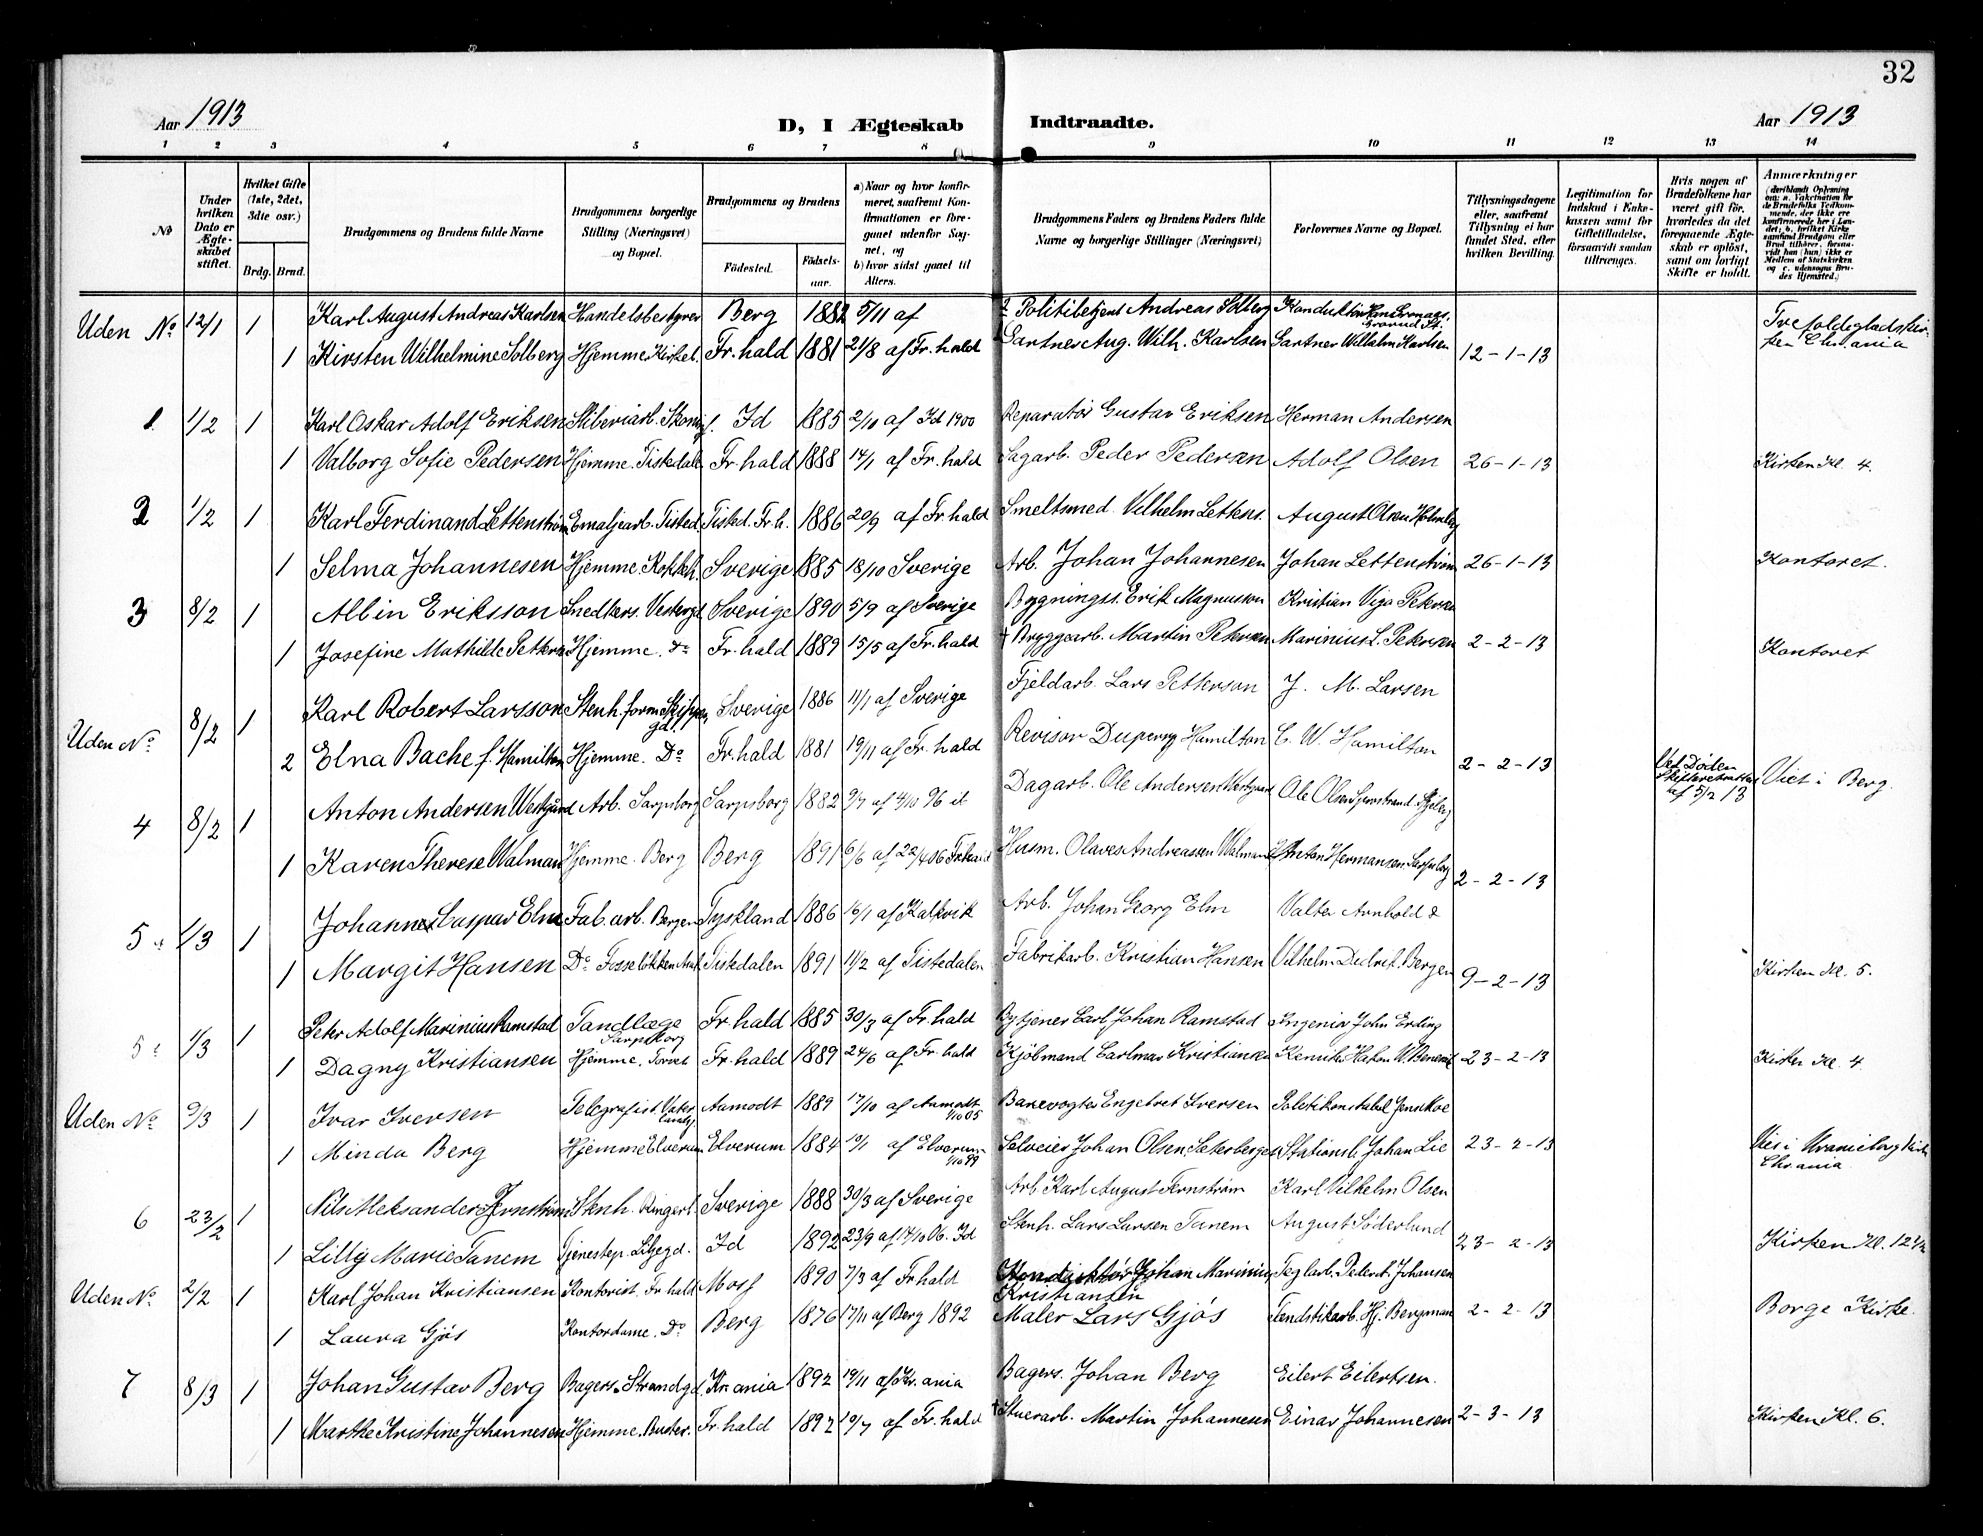 32
Aar 1913
D, I Ægteskab Indtraadte.
Aar 1913
1 2 3 4 5 6 7 8 9 10 11 12 13 14
No
Under hvilken Dato er Ægteskabet stiftet.
Hvilket Gifte (1ste, 2det, 3die osv.)
Brdg. Brud.
Brudgommens og Brudens fulde Navne
Brudgommens borgerlige Stilling (Næringsvei) og Bopæl.
Brudgommens og Brudens
Födested. Födselsaar.
a) Naar og hvor konfirmeret, saafremt Konfirmationen er foregaaet udenfor Sognet, og
b) hvor sidst gaaet til Alters.
Brudgommens Faders og Brudens Faders fulde Navne og borgerlige Stillinger (Næringsvei)
Forlovernes Navne og Bopæl.
Tillysningsdagene eller, saafremt Tillysning ei har fundet Sted, efter hvilken Bevilling.
Legitimation for Indskud i Enkekassen samt for Giftetilladelse, forsaavidt saadan tiltrænges.
Hvis nogen af Brudefolkene har været gift för, hvorledes da det foregaaende Ægteskab er oplöst, samt om lovligt Skifte er holdt.
Anmærkninger
Uden No 12/1 1 Karl August Andreas Karlsen Handelsbestyrer Berg 1882 5/11 af Politibetjent Andreas Solberg
1 Kirsten Wilhelmine Solberg Hjemme Fr.hald 1881 21/8 af Fr.hald Gartner Aug. Wilh. Karlsen Gartner Wilhelm Karlsen 12-1-13
1. 1/2 1 Karl Oskar Adolf Eriksen Id 1885 2/10 af Id 1900 Reparatør Gustav Eriksen Herman Andersen
1 Valborg Sofie Pedersen Hjemme. Tistedalen Fr.hald 1888 14/1 af Fr.hald Sagarb. Peder Pedersen Adolf Olsen 26-1-13 Kirken Kl. 4.
2 1/2 1 Karl Ferdinand Lettenstrøm Emaljearb. Tisted. Tisted. Fr.h. 1886 20/9 af Fr.hald Smeltsmed Vilhelm Lettens. August Olsen Holmberg
1 Selma Johannesen Hjemme. Sverige 1885 18/10 Sverige Arb. Johan Johannesen Johan Lettenstrøm 26-1-13 Kontoret.
3 8/2 1 Albin Eriksson Snedkers. Vestergd. Sverige 1890 5/9 af Sverige Bygningss. Erik Magnusson Kristian Petersen
1 Josefine Mathilde Hjemme. Do Fr.hald 1889 15/5 af Fr.hald † Bryggearb. Martin Petersen Marinius L. Petersen 2-2-13 Kontoret
Uden No 8/2 1 Karl Robert Larsson Stenh. form. Sverige 1886 11/1 af Sverige Fjeldarb. Lars Petterson J. M. Larsen
2 Elna Bache f. Hamilton Hjemme. Do Fr.hald 1881 19/11 af Fr.hald Revisor Duperry Hamilton C. W. Hamilton 2-2-13 Ved Døden Skifteretsattest af 5/2 13 Viet i Berg.
4 8/2 1 Anton Andersen Vestgård Arb. Sarpsborg Sarpsborg 1882 9/7 af 4/10 96 Dagarb. Ole Andersen Vestgaard Ole Olsen
1 Karen Therese Walman Hjemme. Berg Berg 1891 6/6 af 22/4 06 Fr.hald Husm. Olaves Andreassen Walman Anton Hermansen Sarpsborg 2-2-13
5 1/3 1 Johannes Caspar Elm Fab.arb. Bergen Tyskland 1886 16/1 af Kalkvik Arb. Johan Georg Elm Valter Arnhold &
1 Margit Hansen Do Tistedalen 1891 11/2 af Tistedalen Fabrikarb. Kristian Hansen Vilhelm Didrik. Bergen 9-2-13 Kirken Kl. 5.
5 1/3 1 Peter Adolf Marinius Ramstad Tandlæge Sarpsborg Fr.hald 1885 30/3 af Fr.hald Bytjener Carl Johan Ramstad Ingeniør John Erding
1 Dagny Kristiansen Hjemme. Torvet Fr.hald 1889 24/6 af Fr.hald Kjöbmand Carlmar Kristiansen 23-2-13 Kirken Kl. 4.
Uden No 9/3 1 Ivar Iversen Telegrafist. Aamodt 1889 17/10 af Aamodt 1/10 05 Banevogter Engebret Iversen Politikonstabel Jens Moe
1 Minda Berg Hjemme Elverum Elverum 1884 19/1 af Elverum 1/10 99 Selveier Johan Olsen Seterberget Stationsb. Johan Lie 23-2-13 Viet i Uranienborg Kirke Chr.ania
6 23/2 1 Nils Aleksander Fernström Stenh. Ringert. Sverige 1888 30/3 af Sverige Arb. Karl August Fernstrøm Karl Vilhelm Olsen
1 Lilly Marie Tanem Tjenestep. Liljegd. Id 1892 23/9 af 17/10 06. Id Stenh. Lars Larsen Tanem August Söderlund 23-2-13 Kirken Kl. 12½
Uden No. 2/2 1 Karl Johan Kristiansen Kontorist Fr.hald Moss 1890 7/3 af Fr.hald Konduktør Johan Marinius Kristiansen Teglarb. Peder A. Johansen
1 Laura Gjös Kontordame. Do Berg 1876 17/11 af Berg 1892 Maler Lars Gjös Fendstikarb. Hj. Bergman 2-2-13 Borge Kirke.
7 8/3 1 Johan Gustav Berg Bagers. Strandgd. Kr.ania 1892 19/11 af Kr.ania Bagers. Johan Berg Eilert Eilertsen.
1 Marthe Kristine Johannesen Hjemme. Buster. Fr.hald 1892 19/7 af Fr.hald † Stuerarb. Martin Johannesen Einar Johannesen 2-3-13 Kirken Kl. 6.